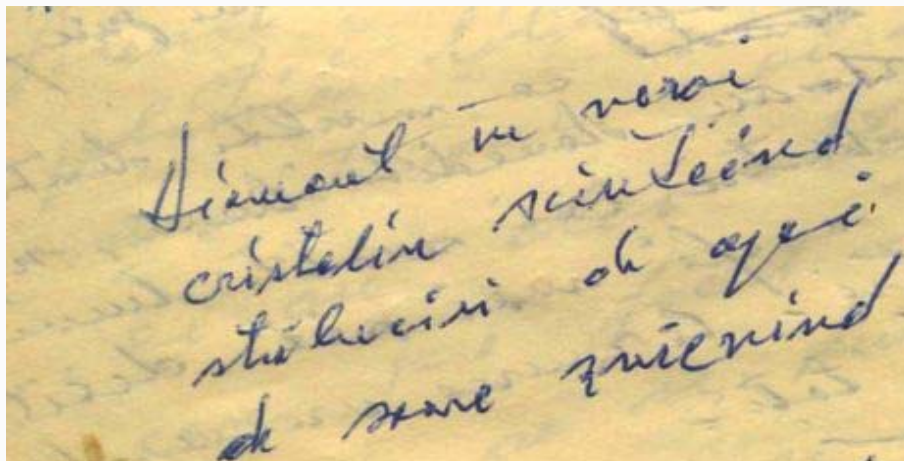 Diamant în noroi
cristalin scînteind
străluciri de apă
de soare zvîcnind